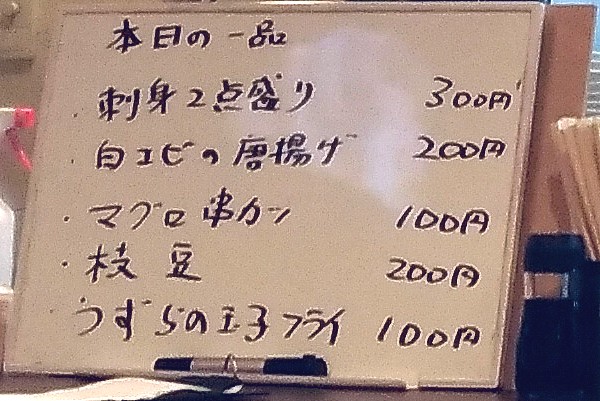 本日の一品
・刺身2点盛り 300円
・白エビの唐揚げ 200円
・マグロ串カツ 100円
・枝豆 200円
うずらの玉子フライ 100円